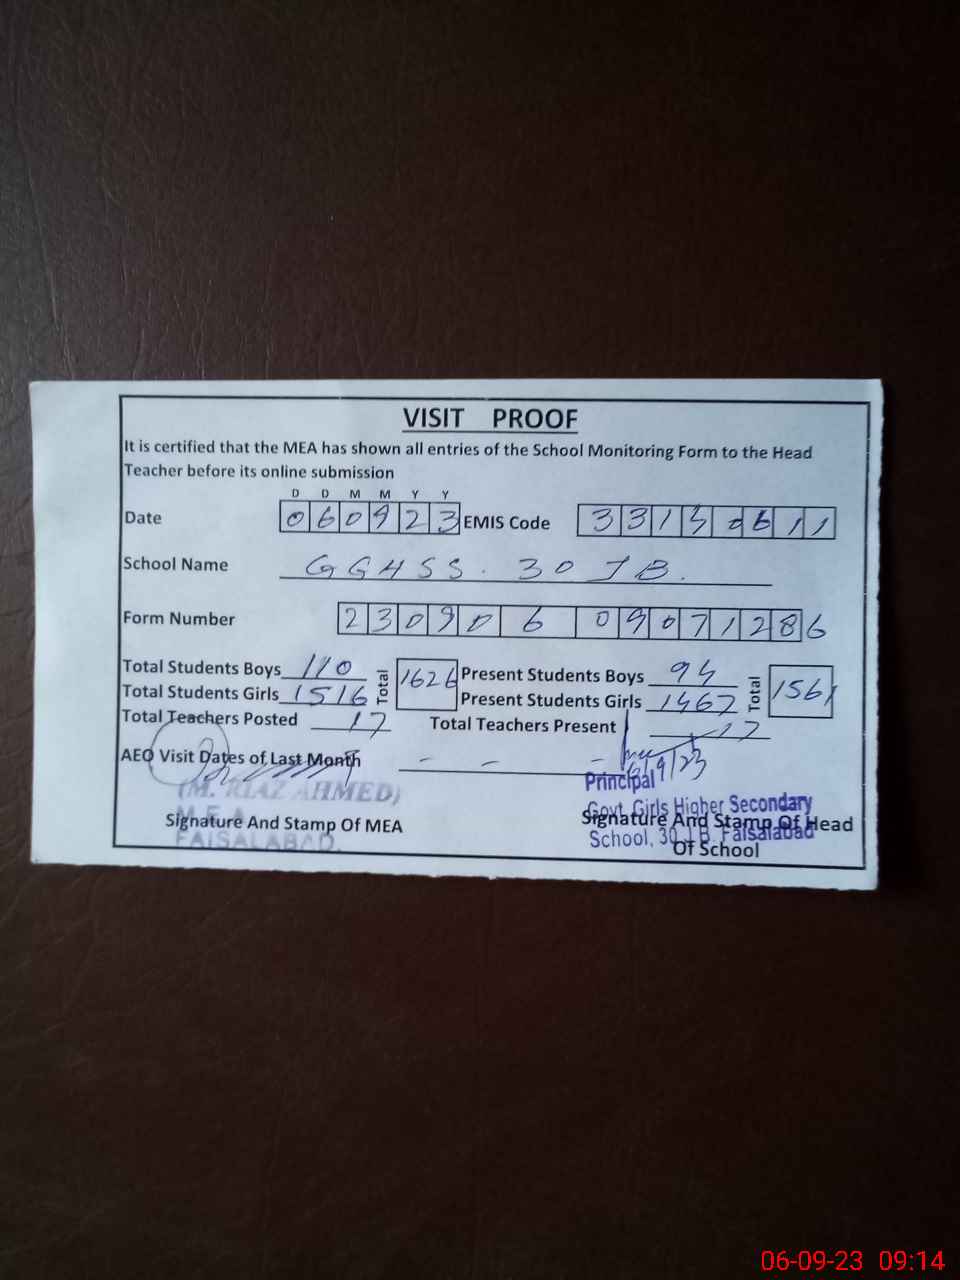 VISIT PROOF
It is certified that the MEA has shown all entries of the School Monitoring Form to the Head
Teacher before its online submission
D D M M Y Y
Date 060923 EMIS Code 33130611
School Name GGHSS. 30 JB.
Form Number 230906 09071286
Total Students Boys 110 Total 1626 Present Students Boys 94 Total 1561
Total Students Girls 1516 Present Students Girls 1467
Total Teachers Posted 17 Total Teachers Present 17
AEO Visit Dates of Last Month - - -
6/9/23
(M. RIAZ AHMED)
M.E.A
FAISALABAD.
Signature And Stamp Of MEA
Principal
Govt. Girls Higher Secondary
School, 30 J.B. Faisalabad
Signature And Stamp Of Head
Of School
06-09-23 09:14